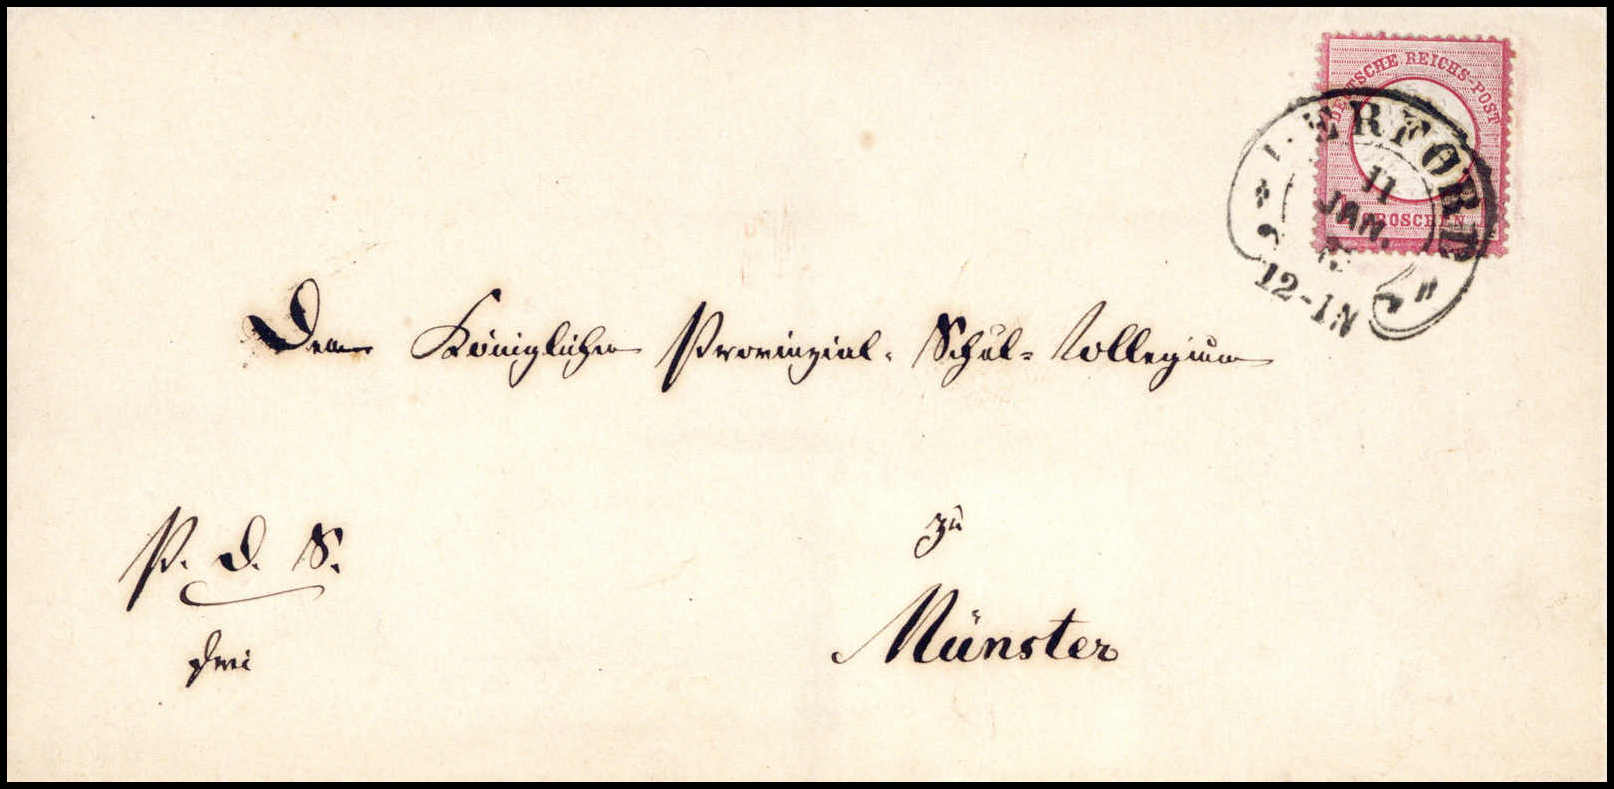 DEUTSCHE REICHS-POST
GROSCHEN
HERFORD
11
JAN.
12-1N
Dem Königlichen Provinzial-Schul-Collegium
zu
Münster
P. D. S.
frei